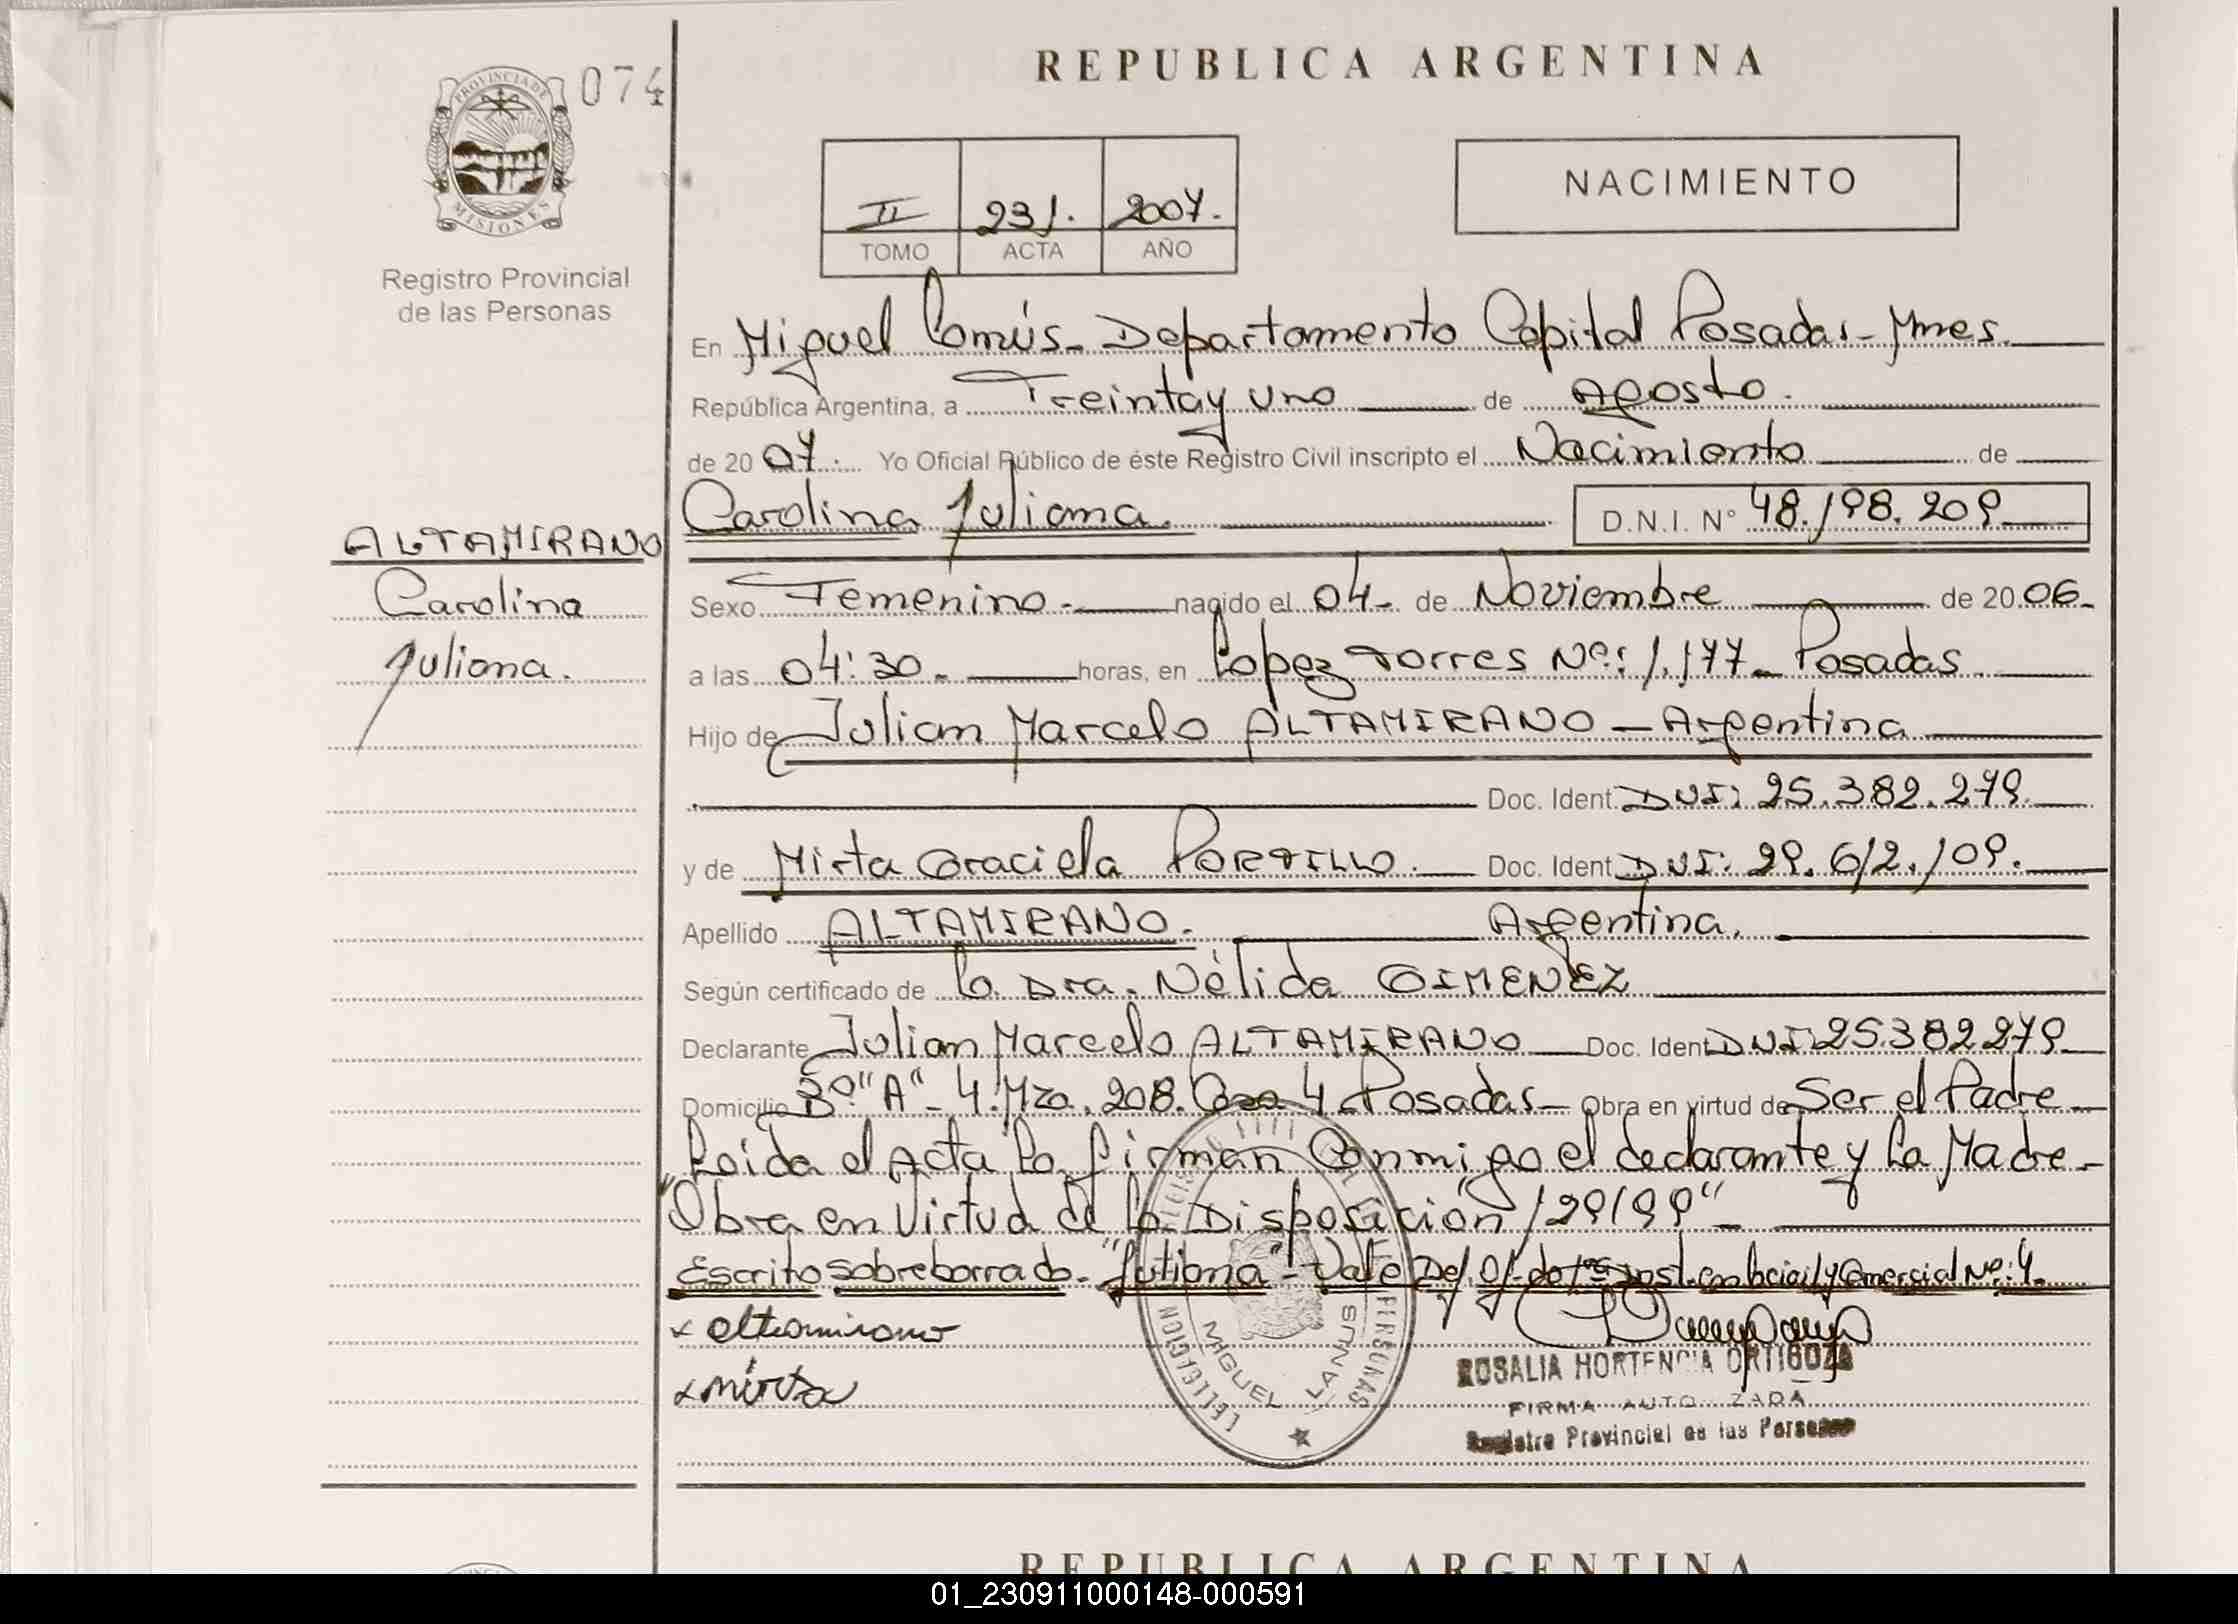 REPUBLICA ARGENTINA
PROVINCIA DE
MISIONES
074
Registro Provincial
de las Personas
II 231. 2007.
TOMO ACTA AÑO
NACIMIENTO
En Miguel Lanús - Departamento Capital Posadas - Mnes.
República Argentina, a Treinta y uno de Agosto.
de 2007. Yo Oficial Público de éste Registro Civil inscripto el Nacimiento de
Carolina Juliana. D.N.I. N° 48.198.209
ALTAMIRANO
Carolina
Juliana.
Sexo Femenino. nacido el 04. de Noviembre de 2006.
a las 04:30. horas, en Lopez Torres Nº: 1.177 - Posadas
Hijo de Julian Marcelo ALTAMIRANO - Argentina
Doc. Ident. DNI: 25.382.279.
y de Mirta Graciela PORTILLO. Doc. Ident. DNI: 29.612.109.
Apellido ALTAMIRANO. Argentina.
Según certificado de la Dra. Nélida GIMENEZ
Declarante Julian Marcelo ALTAMIRANO Doc. Ident DNI: 25.382.279
Domicilio Bº "A" - 4. Mza. 208. Casa 4 - Posadas - Obra en virtud de Ser el Padre
Leida el Acta la firman Conmigo el declarante y la Madre -
"Obra en Virtud de la Disposición 129/99" -
Escrito sobre borrado - "Juliana" - Vale
x altamirano
x mirta
MIGUEL LANUS
ROSALIA HORTENCIA ORTIGOZA
FIRMA AUTORIZADA
Registro Provincial de las Personas
REPUBLICA ARGENTINA
01_230911000148-000591